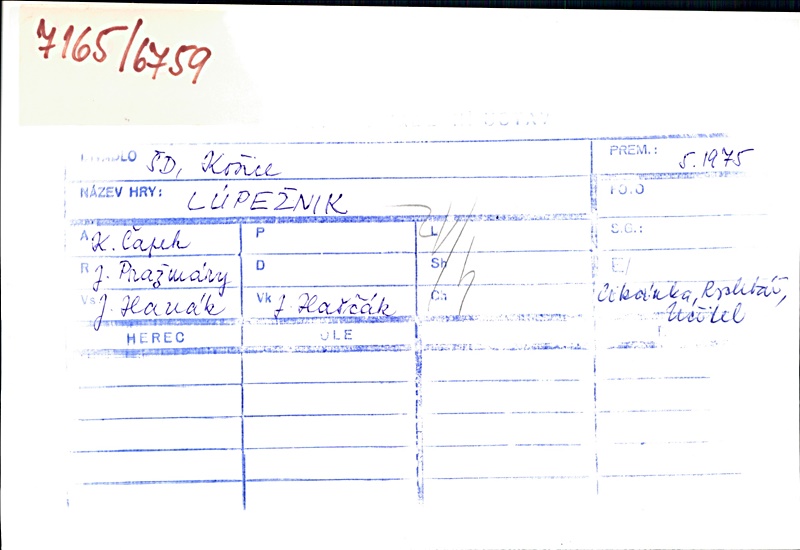 7165/6759
ÚSTAV
DIVADLO ŠD, Košice PREM.: 5.1975
NÁZEV HRY: LÚPEŽNIK FOTO
A K. Čapek P L S.C.:
R J. Pražmáry D Sh E/
Vs J. Hanák Vk J. Haščák Ch Cikánka, Rychtář,
Učitel
HEREC ROLE